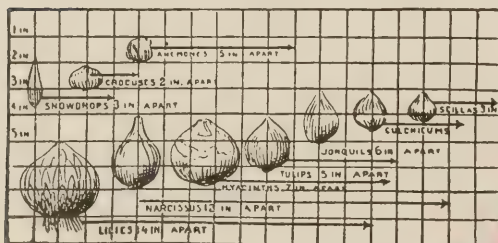 1 IN
2 IN
ANEMONES 5 IN. APART
3 IN
CROCUSES 2 IN. APART
4 IN
SNOWDROPS 3 IN APART
SCILLAS 3 IN
5 IN
CULCHICUMS
JONQUILS 6 IN APART
TULIPS 5 IN APART
HYACINTHS 7 IN APART
NARCISSUS 12 IN APART
LILIES 14 IN APART